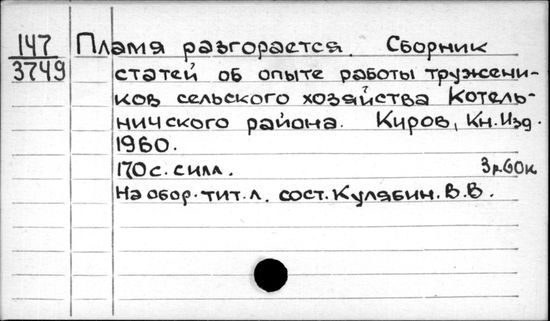 147 Пламя разгорается. Сборник
3749 статей об опыте работы тружени-
ков сельского хозяйства Котель-
ничского района. Киров, Кн. Изд.
1960.
170 с. с илл. 3 р. 60 к
На обор. тит. л. сост. Кулябин. В. В.